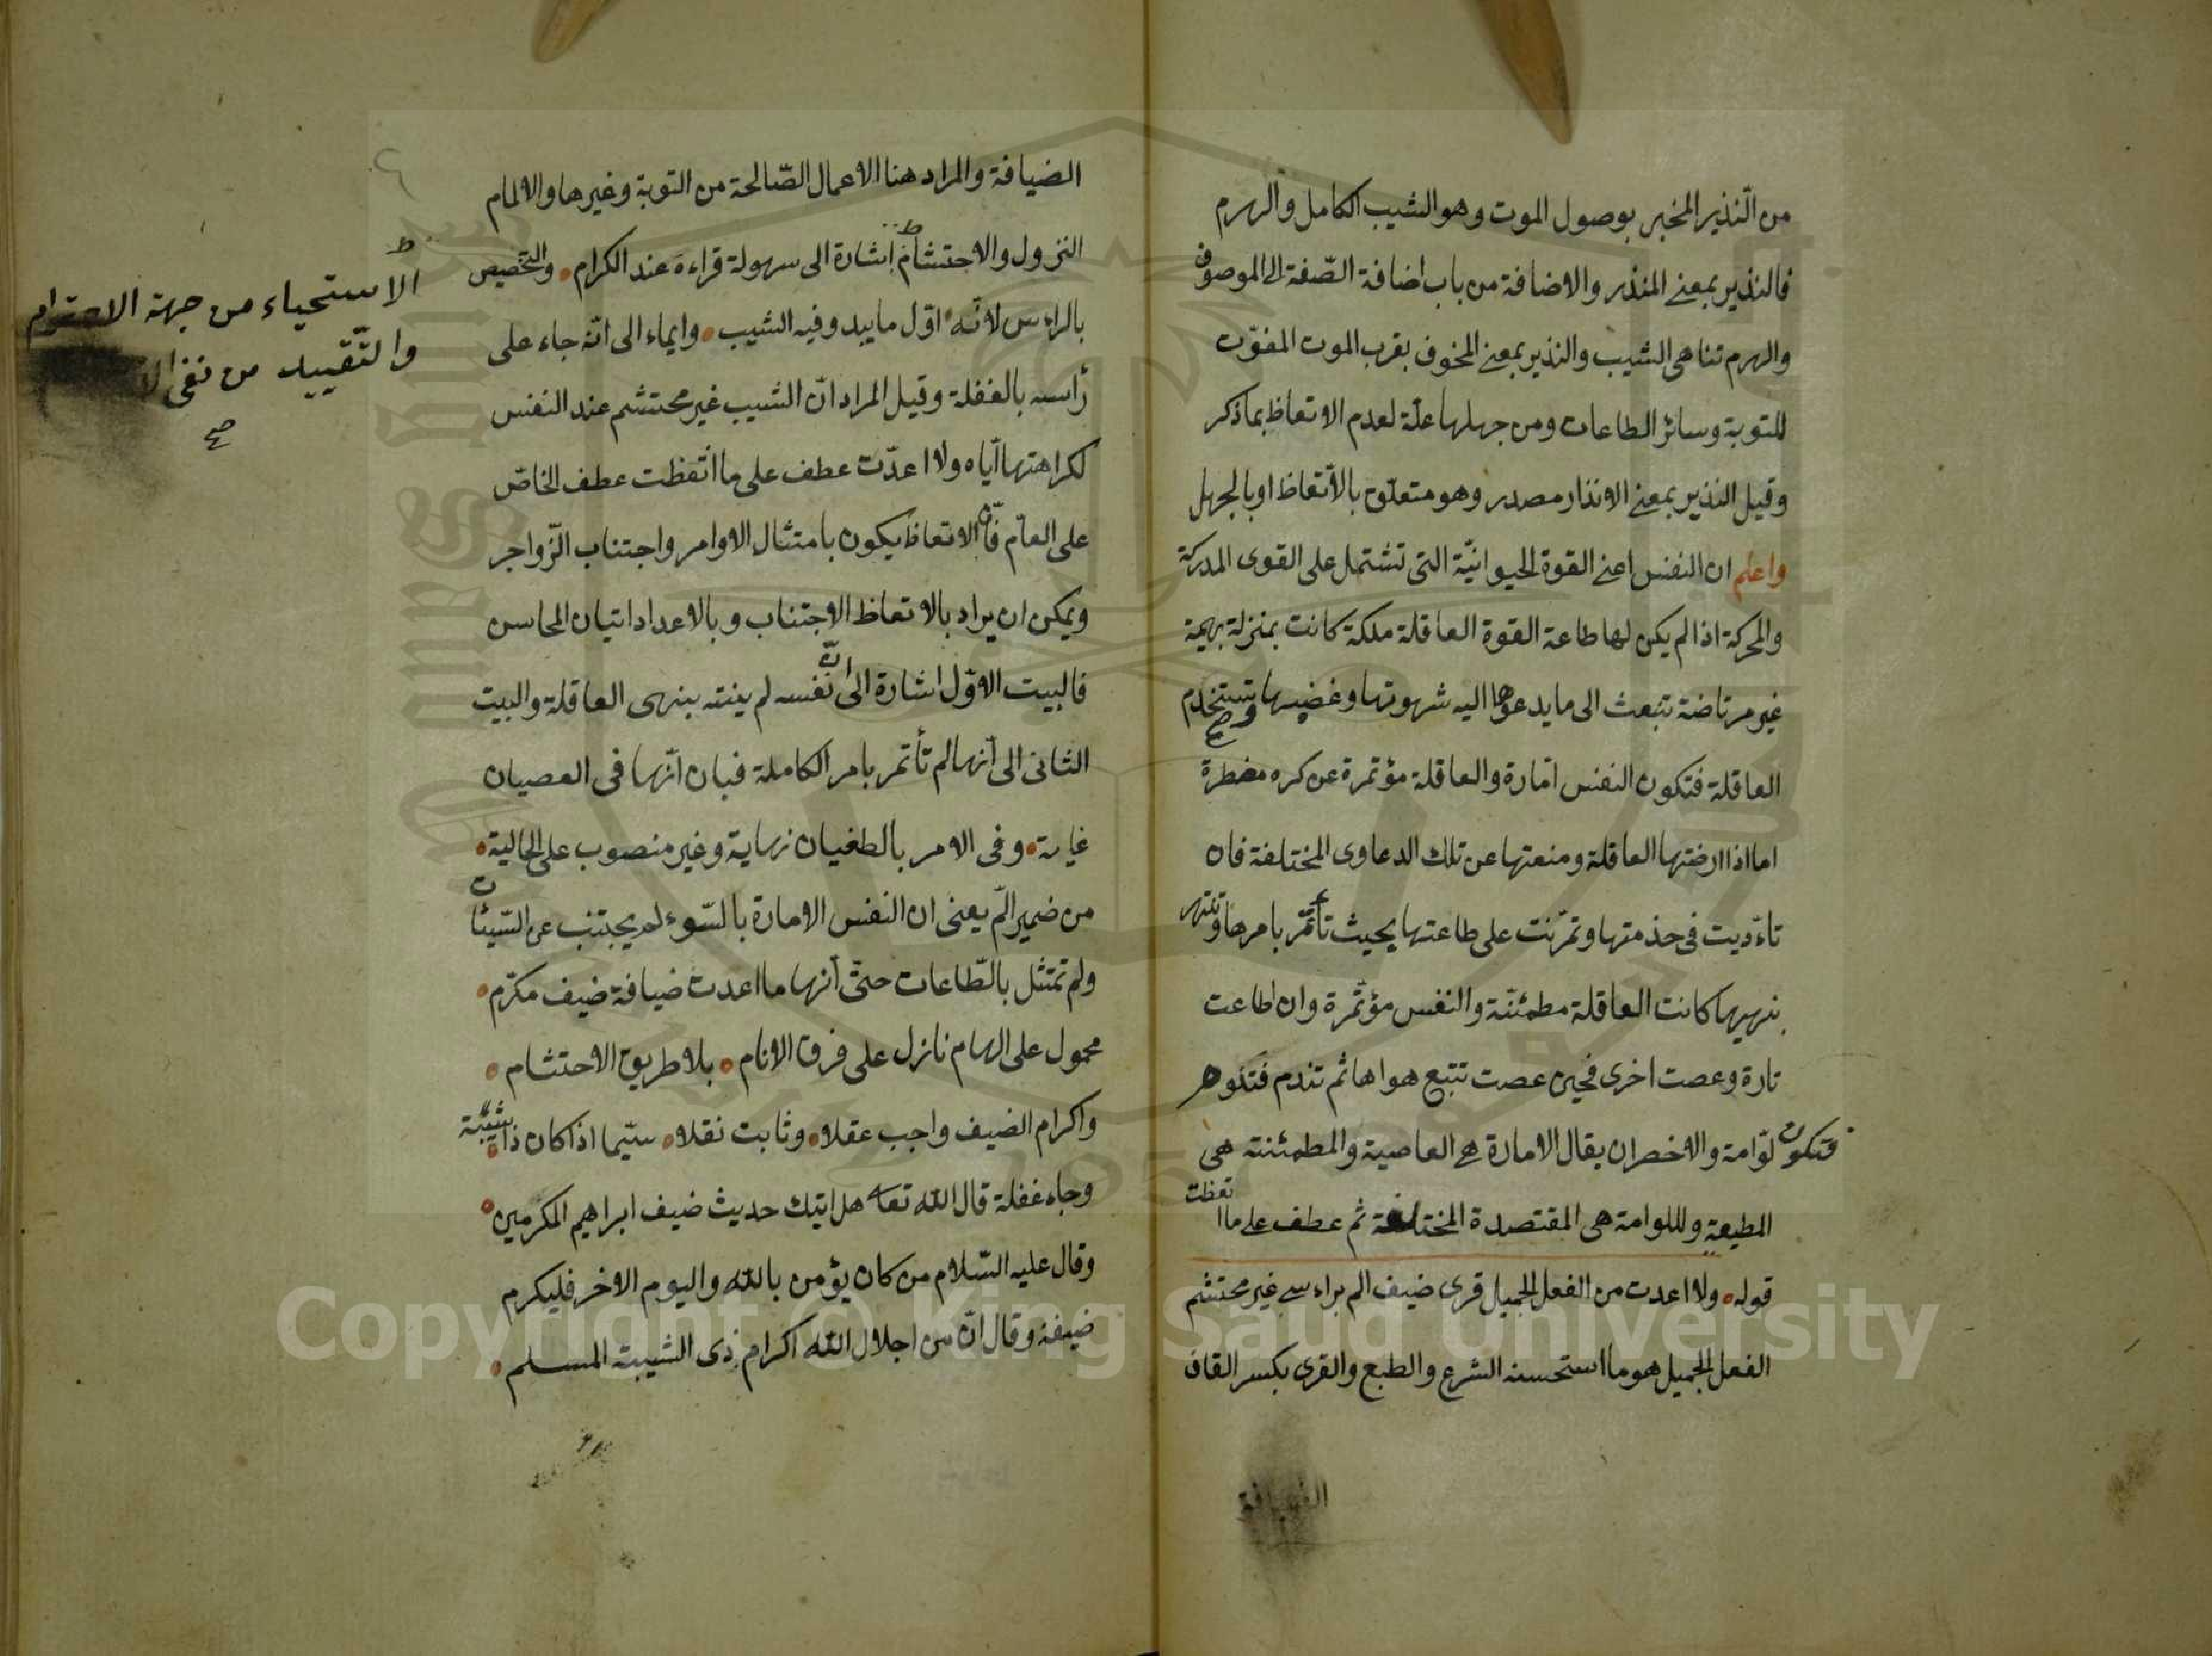 من النّذير المخبر بوصول الموت وهو الشيب الكامل والهرم
فالنذير بمعنى المنذر والاضافة من باب اضافة الصّفة الى الموصوف
والهرم تناهى الشيب والنذير بمعنى المخوف بقرب الموت المفوّت
للتوبة وسائر الطاعات ومن جهلها علّة لعدم الاتعاظ بما ذكر
وقيل النذير بمعنى الانذار مصدر وهو متعلّق بالاتّعاظ او بالجهل
واعلم ان النفس اعنى القوة الحيوانيّة التى تشتمل على القوى المدركة
والمحركة اذا لم يكن لها طاعة القوة العاقلة ملكة كانت بمنزلة بهيمة
غير مرتاضة تبعث الى ما يدعوها اليه شهوتها وغضبها وتستخدم
صح
العاقلة فتكون النفس امّارة والعاقلة مؤتمرة عن كره مضطرة
اما اذا ارضتها العاقلة ومنعتها عن تلك الدعاوى المختلفة فان
تاءدبت فى خذمتها وتمرّنت على طاعتها بحيث تأتمر بامرها وتنتهى
بنهيها كانت العاقلة مطمئنّة والنفس مؤتمرة وان اطاعت
تارة وعصت اخرى فحين عصت تتبع هواها ثم تندم
فتكون لوّامة والاخصر ان يقال الامارة هى العاصية والمطمئنة هى
المطيعة واللوامة هى المقتصدة المختلفة ثم عطف على ما اتعظت
قوله ولا اعدت من الفعل الجميل قرى ضيف الم براءسى غير محتشم
الفعل الجميل هو ما استحسنه الشرع والطبع والقرى بكسر القاف
الضيافة
الضيافة والمراد هنا الاعمال الصّالحة من التوبة وغيرها والالمام
النزول والاحتشام اشارة الى سهولة قراءه عند الكرام والتخصيص
بالراءس لانّه اوّل ما يبدو فيه الشيب وايماء الى انّه جاء على
رأسه بالغفلة وقيل المراد انّ الشيب غير محتشم عند النفس
لكراهتها ايّاه ولا اعدّت عطف على ما اتّعظت عطف الخاصّ
على العامّ فانّ الاتعاظ يكون بامتثال الاوامر واجتناب الزّواجر
ويمكن ان يراد بالاتعاظ الاجتناب وبالاعداد اتيان المحاسن
فالبيت الاوّل اشارة الى انّ نفسه لم ينته بنهى العاقلة والبيت
الثانى الى أنّها لم تأتمر بامر الكاملة فبان انّها فى العصيان
غاية وفى الامر بالطغيان نهاية وغير منصوب على الحالية
من ضمير المّ يعنى ان النفس الامارة بالسّوء لم يجتنب عن السّيئات
ولم تمتثل بالطّاعات حتّى أنّها ما اعدت ضيافة ضيف مكرّم
محمول على الهام نازل على فرق الانام بلا طريق الاحتشام
واكرام الضيف واجب عقلا وثابت نقلا سيّما اذا كان ذا شيبة
وجاء غفلة قال الله تعا هل اتيك حديث ضيف ابراهيم المكرمين
وقال عليه السّلام من كان يؤمن بالله واليوم الاخر فليكرم
ضيفه وقال انّ من اجلال الله اكرام ذى الشيبة المسلم
ط
الاستحياء من جهة الاحترام
والتّقييد من نفى
صح
Copyright © King Saud University